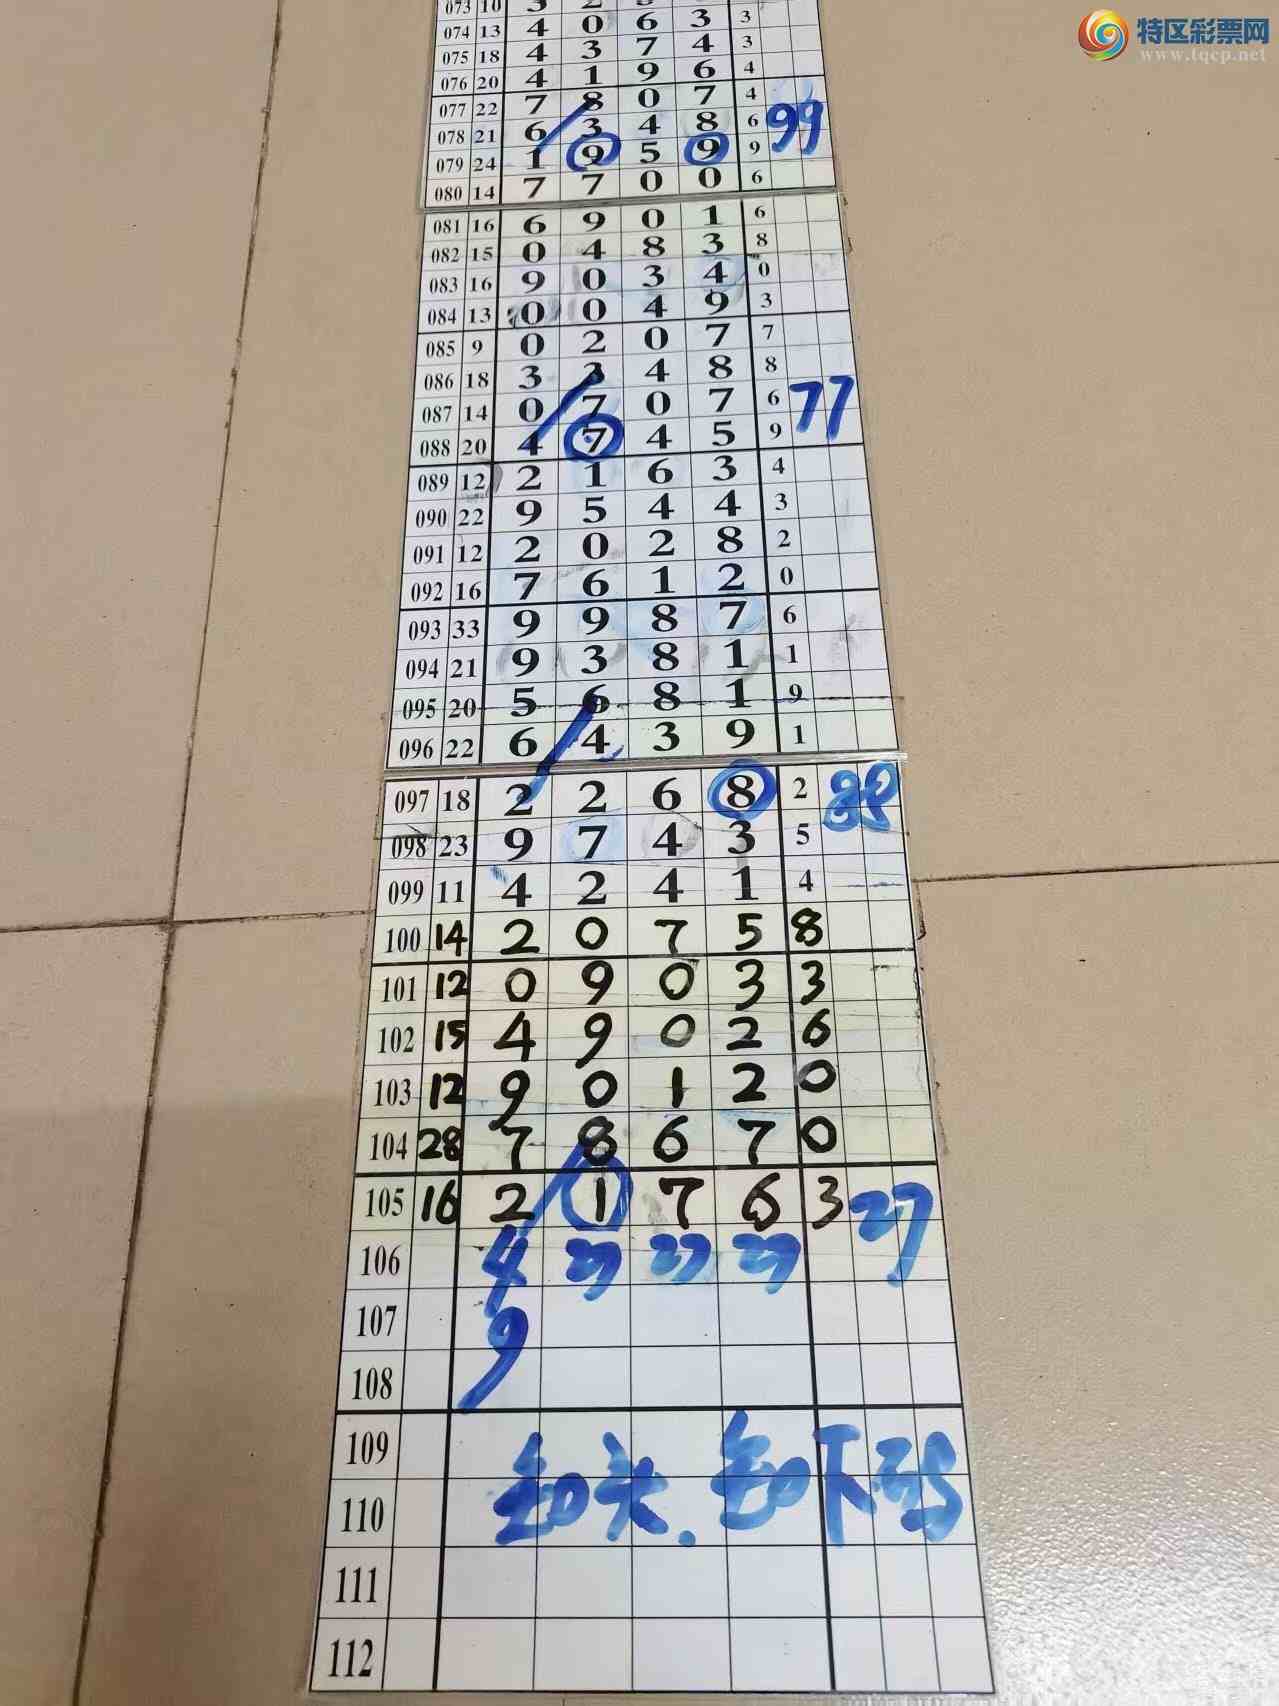 特区彩票网
www.tqcp.net
073 10 3 2
074 13 4 0 6 3 3
075 18 4 3 7 4 3
076 20 4 1 9 6 4
077 22 7 8 0 7 4
078 21 6 3 4 8 6 99
079 24 1 9 5 9 9
080 14 7 7 0 0 6
081 16 6 9 0 1 6
082 15 0 4 8 3 8
083 16 9 0 3 4 0
084 13 0 0 4 9 3
085 9 0 2 0 7 7
086 18 3 3 4 8 8
087 14 0 7 0 7 6 77
088 20 4 7 4 5 9
089 12 2 1 6 3 4
090 22 9 5 4 4 3
091 12 2 0 2 8 2
092 16 7 6 1 2 0
093 33 9 9 8 7 6
094 21 9 3 8 1 1
095 20 5 6 8 1 9
096 22 6 4 3 9 1
097 18 2 2 6 8 2 88
098 23 9 7 4 3 5
099 11 4 2 4 1 4
100 14 2 0 7 5 8
101 12 0 9 0 3 3
102 15 4 9 0 2 6
103 12 9 0 1 2 0
104 28 7 8 6 7 0
105 16 2 1 7 6 3 27
106 4 27 27 27
107 9
108
109
110 知头.知下码
111
112